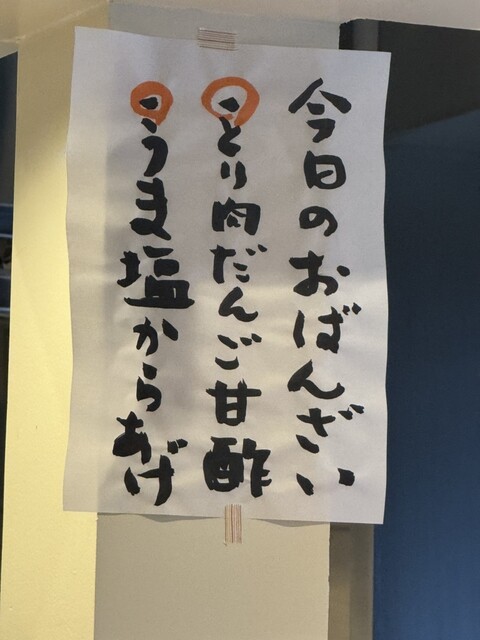 今日のおばんざい
とり肉だんご甘酢
うま塩からあげ